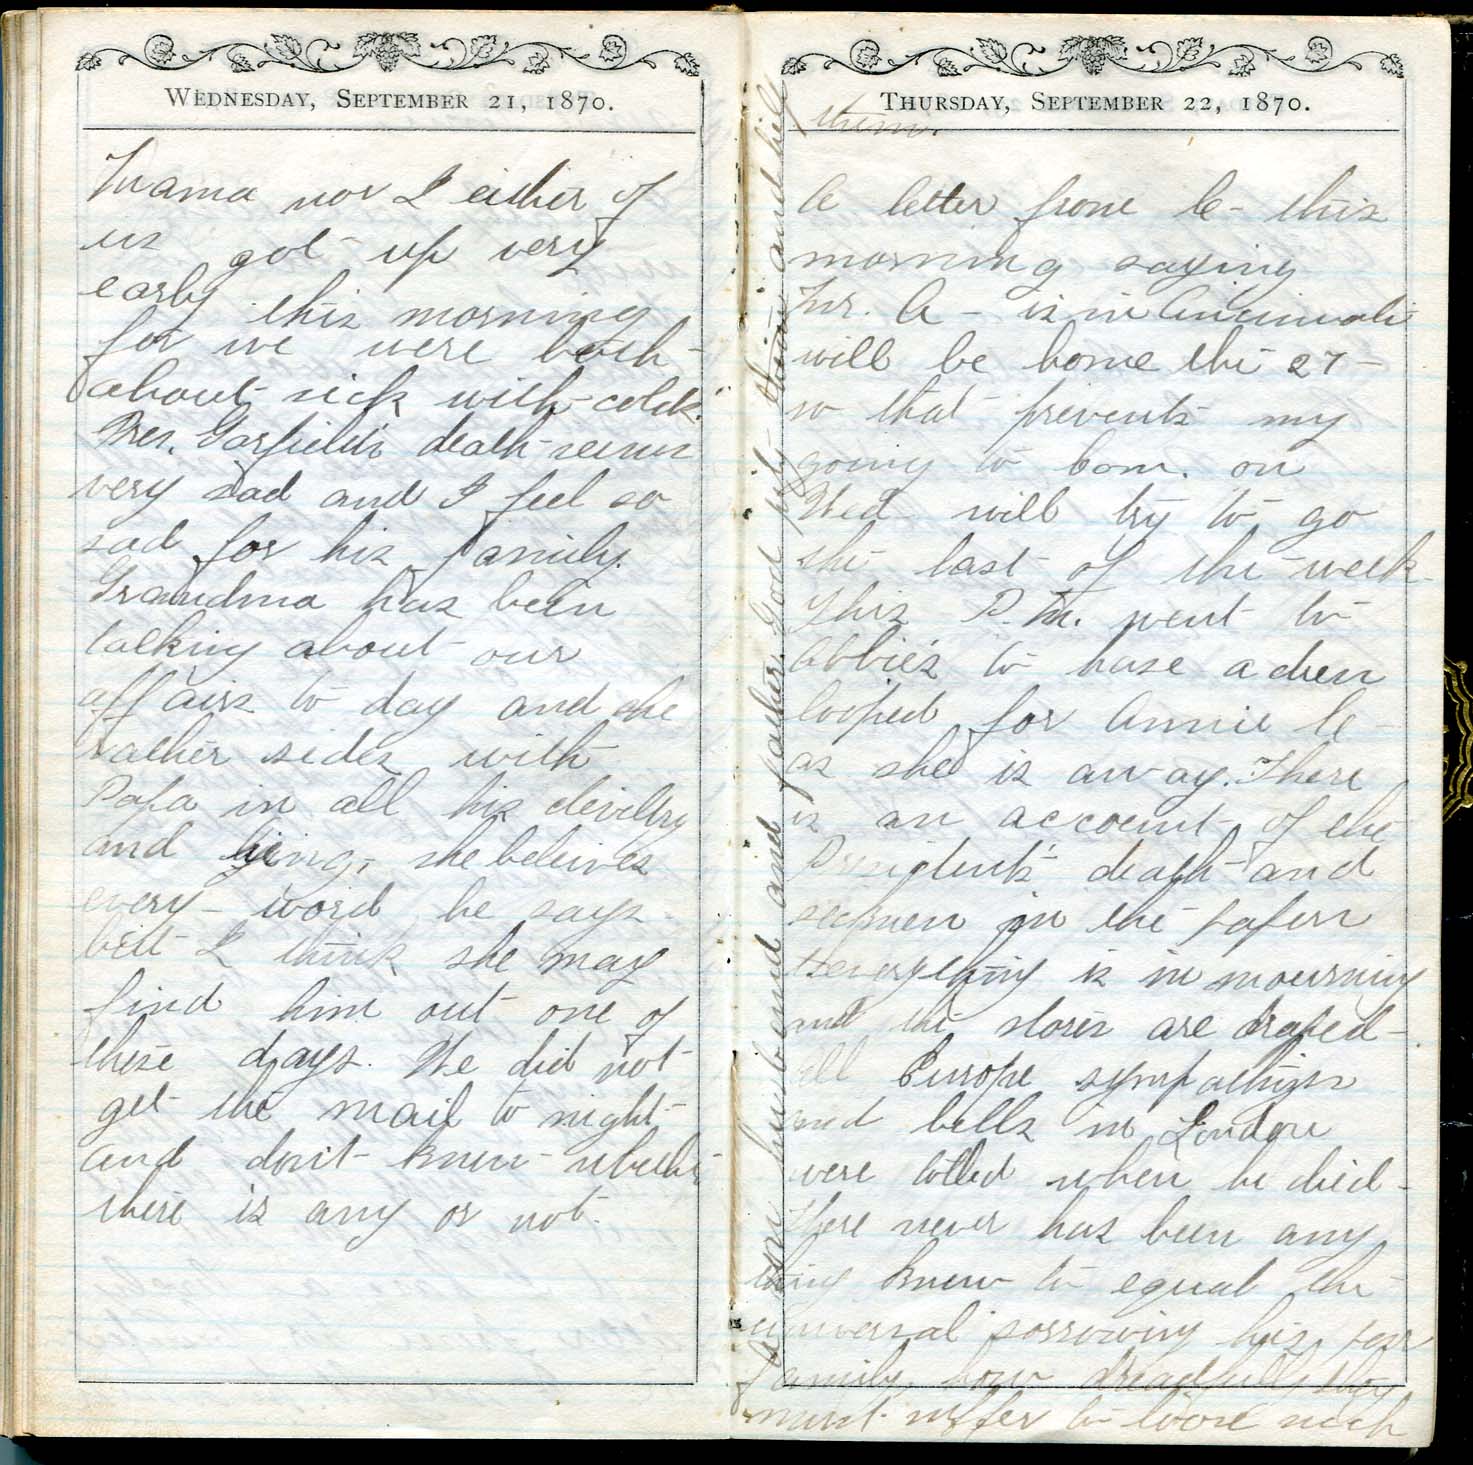 Wednesday, September 21, 1870.
Mama nor I either of
us got up very
early this morning
for we were both
about sick with colds.
Pres. Garfield's death seems
very sad and I feel so
sad for his family.
Grandma has been
talking about our
affairs to day and she
rather sides with
Papa in all his deviltry
and lying, she beleives
every word he says
but I think she may
find him out one of
these days. We did not
get the mail to night
and don't know whether
there is any or not.
Thursday, September 22, 1870.
A letter from C- this
morning saying
Mr. A- is in Cincinnati
will be home the 27-
so that prevents my
going to Bom. on
Wed will try to go
the last of the week.
This P.M. went to
Abbie's to have a dress
looped for Annie C-
as she is away. There
is an account of the
President's death and
in the papers
everything is in mourning
and the stores are draped-
all Europe sympathizes
and bells in London
were tolled when he died-
There never has been any
thing know to equal the
universal sorrowing his poor
family, how dreadfully they
must suffer to loose such
a husband and father. God pity them and help
them.